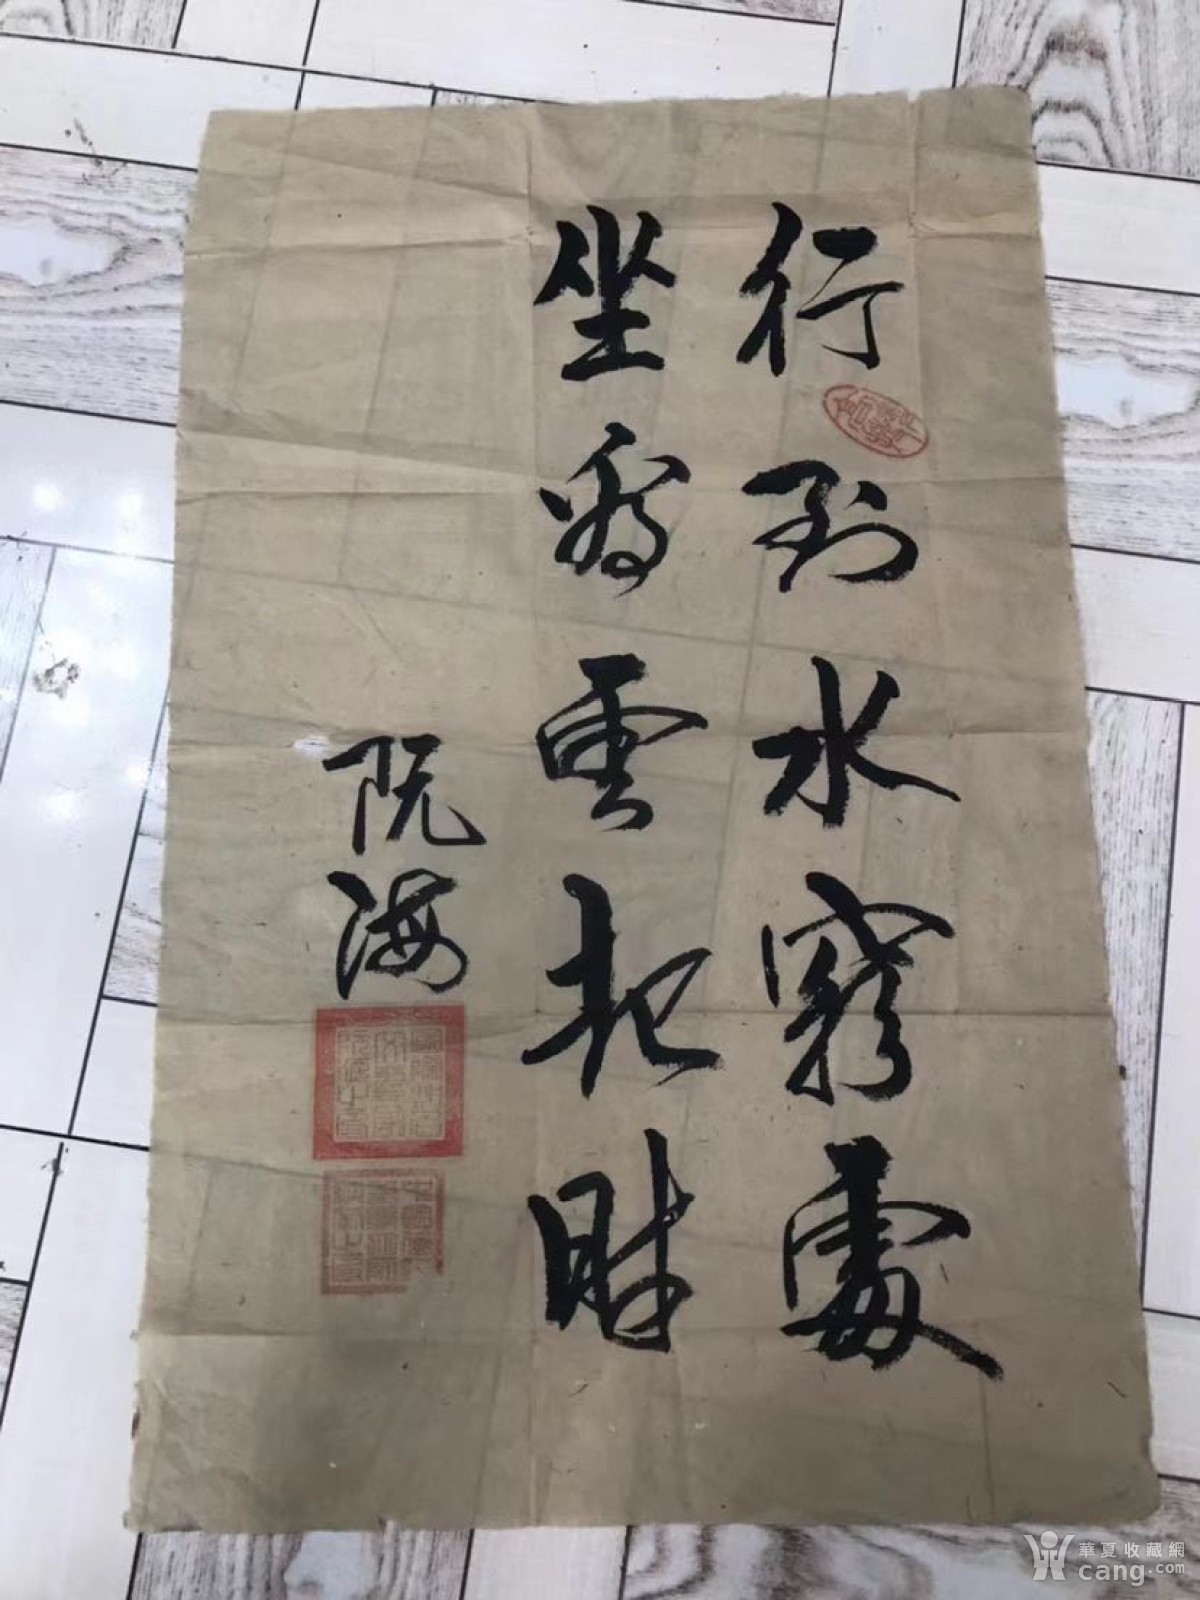 行到水窮處
坐看雲起時
阮海
華夏收藏網
cang.com